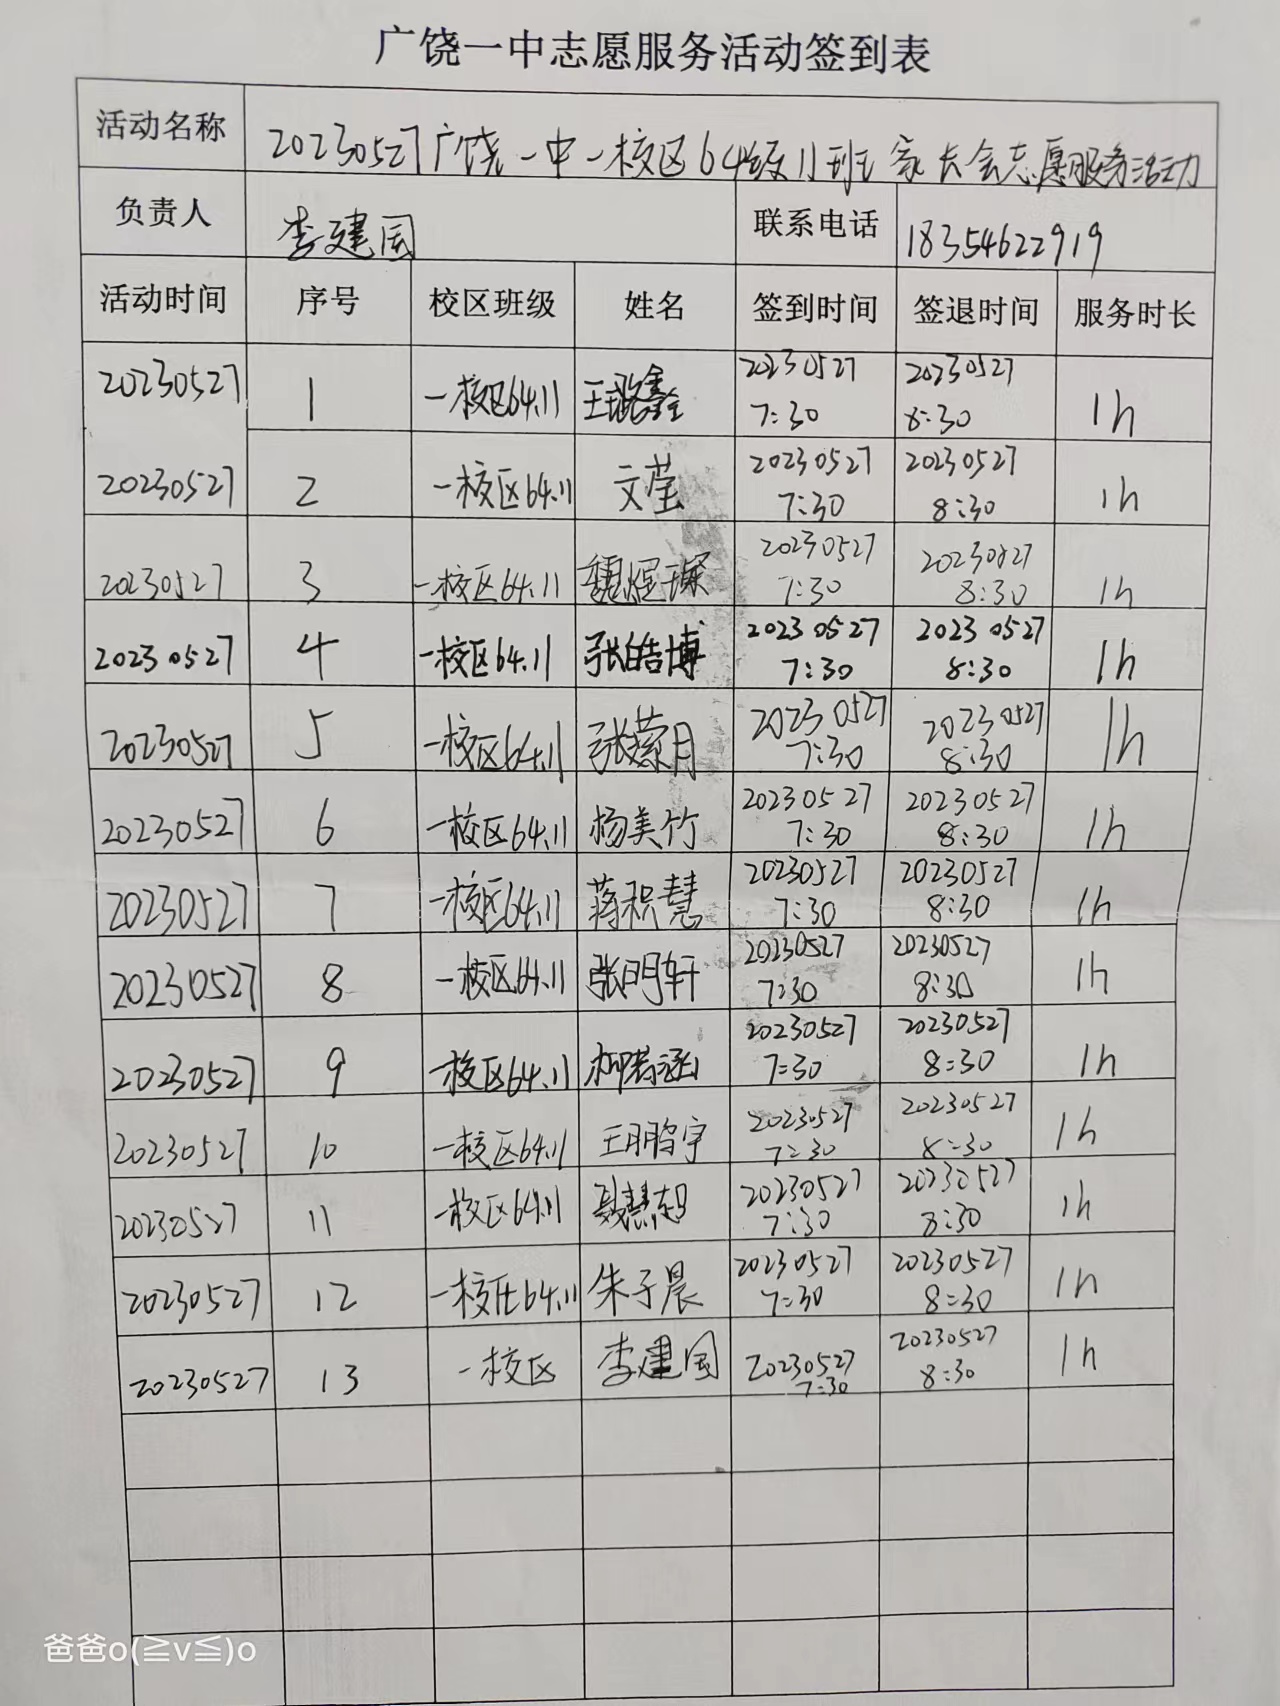 广饶一中志愿服务活动签到表
活动名称 20230527广饶一中一校区64级11班家长会志愿服务活动
负责人 李建国 联系电话 18354622919
活动时间 序号 校区班级 姓名 签到时间 签退时间 服务时长
20230527 1 一校区64.11 王鑫 20230527 7:30 20230527 8:30 1h
20230527 2 一校区64.11 文莹 20230527 7:30 20230527 8:30 1h
20230527 3 一校区64.11 魏煜琛 20230527 7:30 20230527 8:30 1h
20230527 4 一校区64.11 张皓博 20230527 7:30 20230527 8:30 1h
20230527 5 一校区64.11 张萦月 20230527 7:30 20230527 8:30 1h
20230527 6 一校区64.11 杨美竹 20230527 7:30 20230527 8:30 1h
20230527 7 一校区64.11 蒋积慧 20230527 7:30 20230527 8:30 1h
20230527 8 一校区64.11 张明轩 20230527 7:30 20230527 8:30 1h
20230527 9 一校区64.11 柳若涵 20230527 7:30 20230527 8:30 1h
20230527 10 一校区64.11 王鹏宇 20230527 7:30 20230527 8:30 1h
20230527 11 一校区64.11 聂慧 20230527 7:30 20230527 8:30 1h
20230527 12 一校区64.11 朱子晨 20230527 7:30 20230527 8:30 1h
20230527 13 一校区 李建国 20230527 7:30 20230527 8:30 1h
爸爸o(≧v≦)o